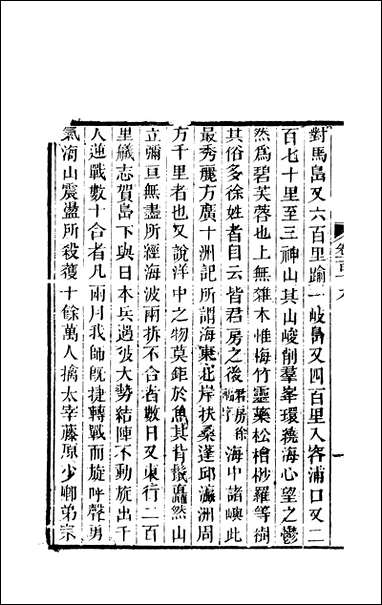 對馬島又六百里踰一岐島又四百里入容浦口又二
百七十里至三神山其山峻削羣峯環繞海心望之鬱
然為碧芙蓉也上無雜木惟梅竹靈藥松檜桫羅等樹
其俗多徐姓者自云皆君房之後君房徐福字海中諸嶼此
最秀麗方廣十洲記所謂海東北岸扶桑蓬邱瀛洲周
方千里者也又說洋中之物莫鉅於魚其背鬣矗然山
立彌亘無盡所經海波兩拆不合者數日又東行二百
里艤志賀島下與日本兵遇彼大勢結陣不動旋出千
人逆戰數十合者凡兩月我師旣捷轉戰而旋呼聲勇
氣海山震盪所殺獲十餘萬人擒太宰藤原少卿弟宗
卷百九
一